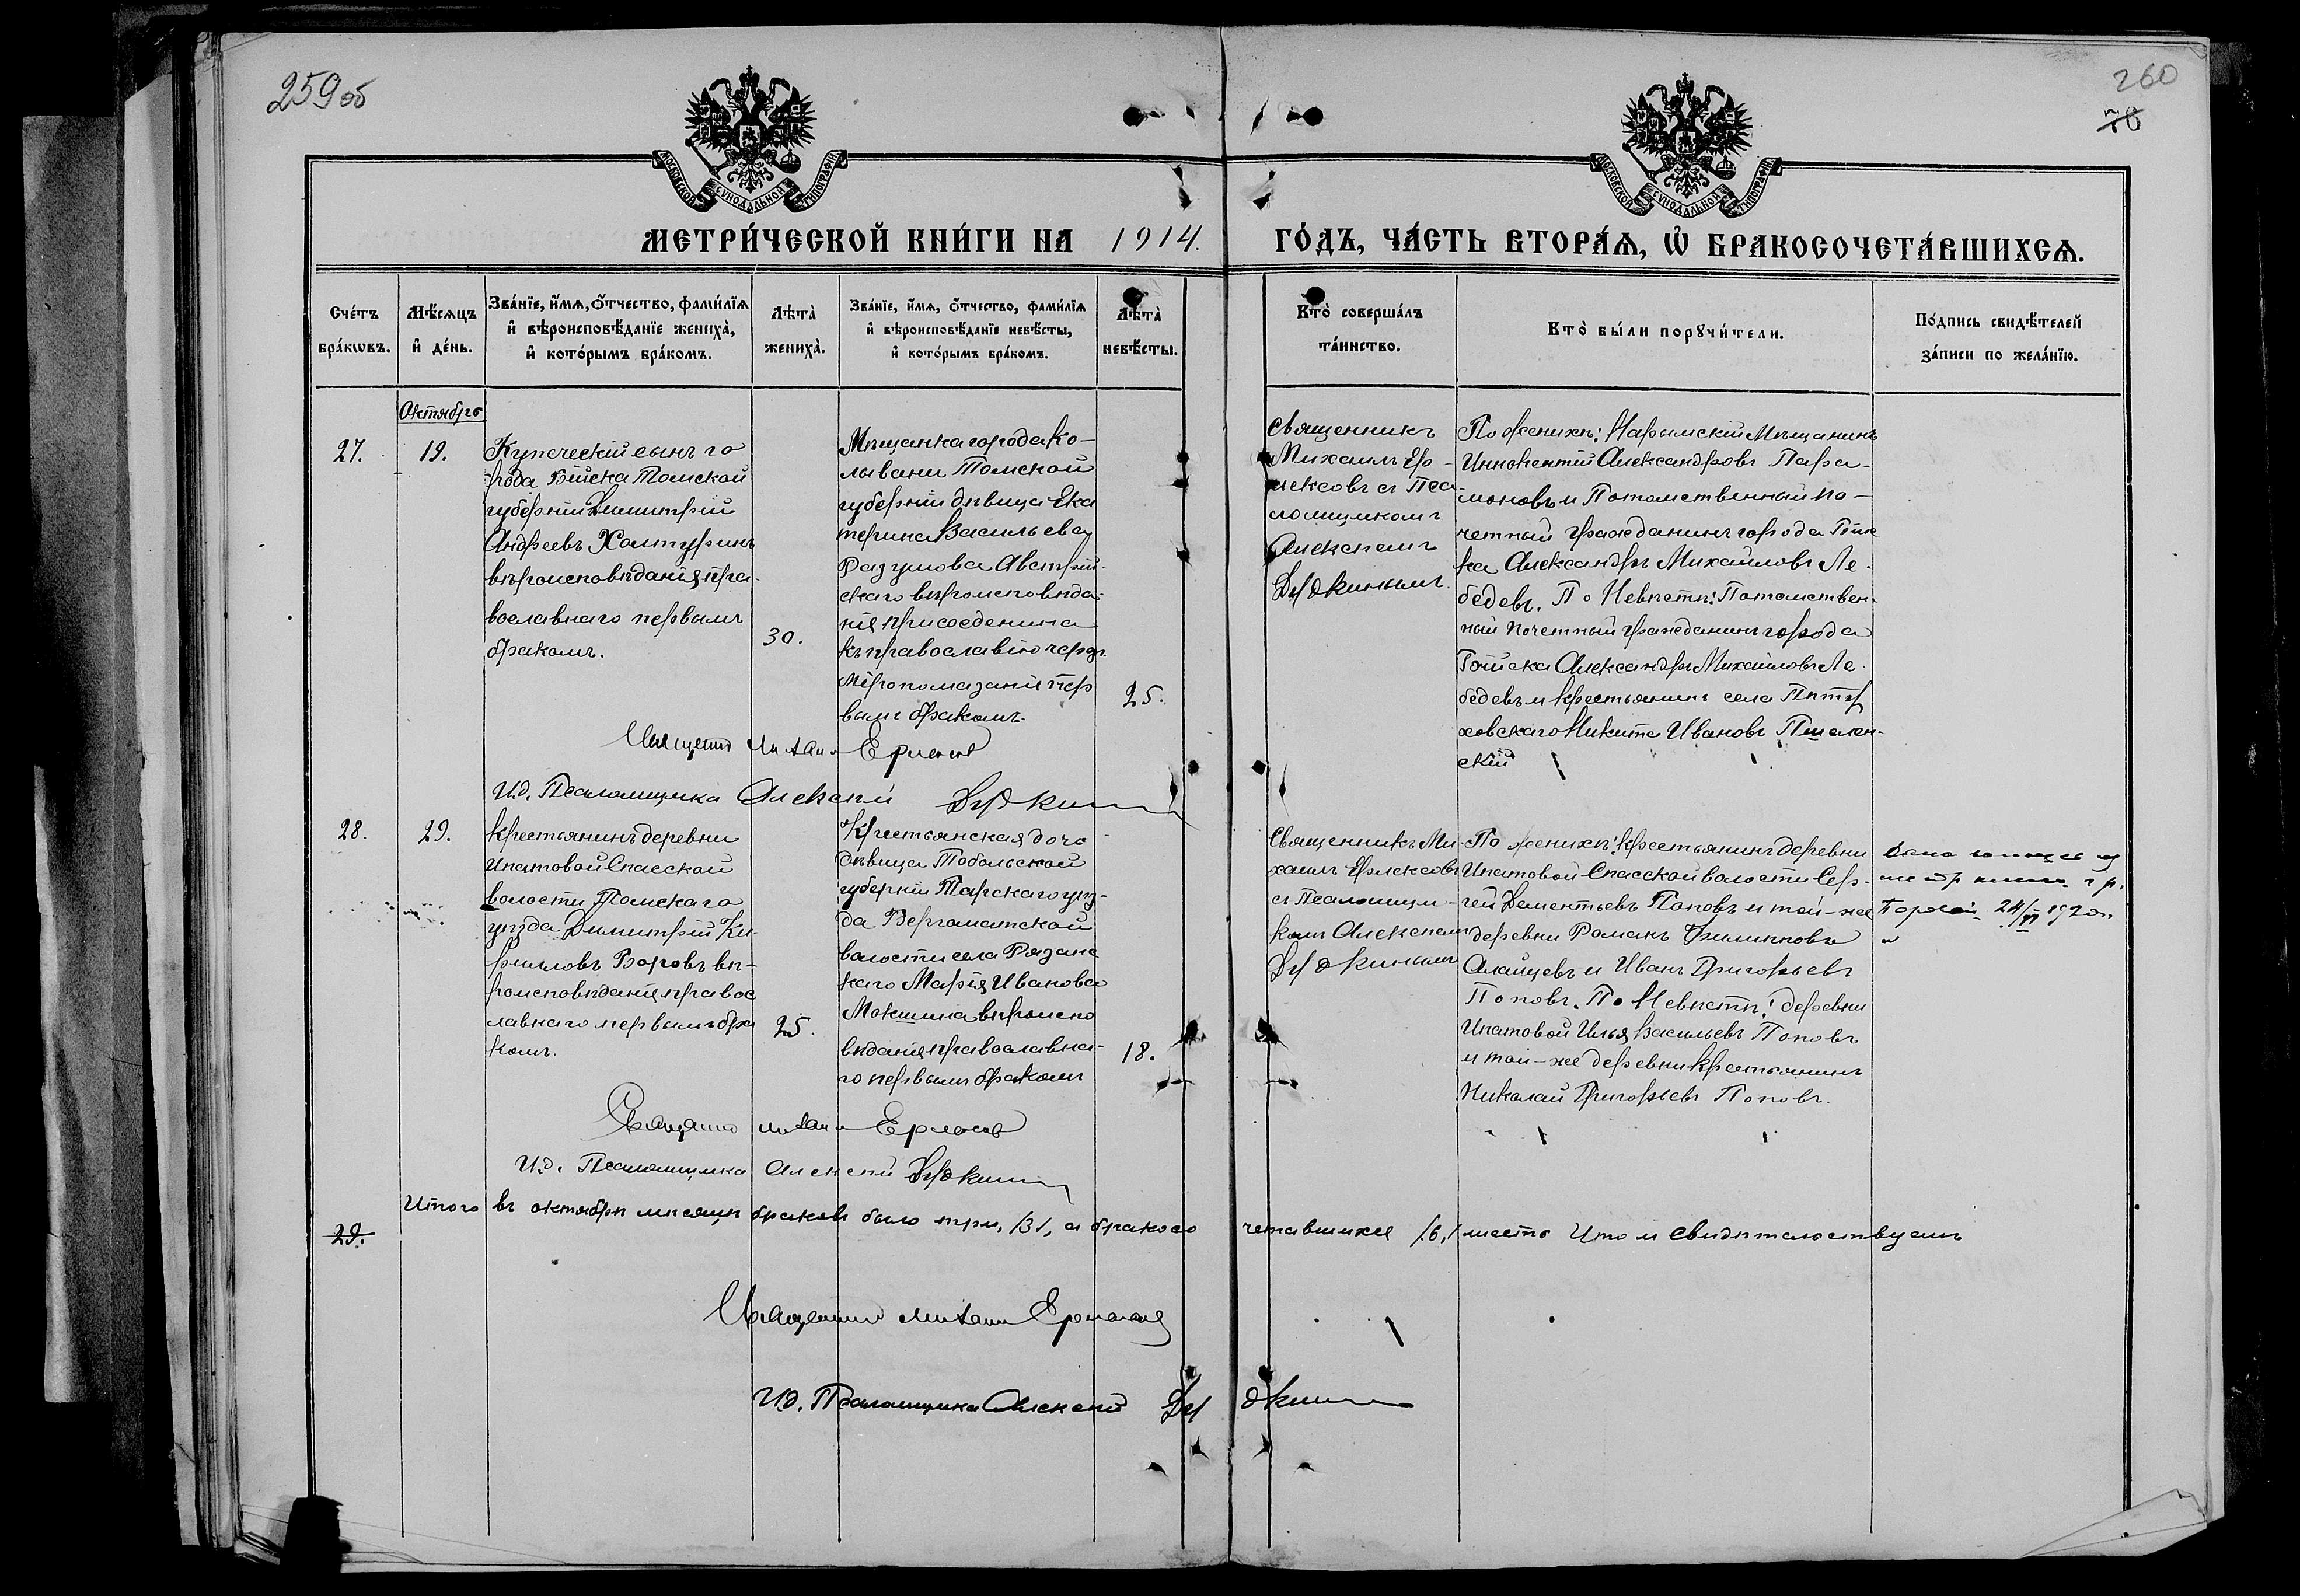 259 об
260
70
МОСКОВСКОЙ СУНОДАЛЬНОЙ ТИПОГРАФІИ
МОСКОВСКОЙ СУНОДАЛЬНОЙ ТИПОГРАФІИ
МЕТРИ́ЧЕСКОЙ КНИ́ГИ НА 1914. ГО́ДЪ, ЧА́СТЬ ВТОРА́Ѧ, Ѡ҆ БРАКОСОЧЕТА́ВШИХСѦ.
Сче́тъ бра́кѡвъ.
Мѣ́сѧцъ и҆ де́нь.
Зва́нїе, и҆́мѧ, ѻ҆́тчество, фами́лїѧ и҆ вѣроисповѣ́данїе жениха̀, и҆ кото́рымъ бра́комъ.
Лѣта̀ жениха̀.
Зва́нїе, и҆́мѧ, ѻ҆́тчество, фами́лїѧ и҆ вѣроисповѣ́данїе невѣ́сты, и҆ кото́рымъ бра́комъ.
Лѣта̀ невѣ́сты.
Кто̀ соверша́лъ та́инство.
Кто̀ бы́ли порꙋчи́тели.
По́дпись свидѣ́телей за́писи по жела́нїю.
Октябрь
27.
19.
Купеческій сынъ го
рода Бійска Томской
губерніи Димитрій
Андреевъ Холтуринъ
вѣроисповѣданія пра-
вославнаго первымъ
бракомъ.
30.
Мѣщанка города Ко-
лывани Томской
губерніи дѣвица Ека
терина Васильева
Разумова Австрій-
скаго вѣроисповѣда-
нія присоеденина
къ православію чрезъ
Мѵропомазаніе пер
вымъ бракомъ.
25.
Священникъ
Михаилъ Ер-
лексовъ съ Пса-
ломщикомъ
Алексѣемъ
Дудкинымъ.
По Женихѣ: Нарымскій Мѣщанинъ
Иннокентій Александровъ Пара-
моновъ и Потомственный по-
четный гражданинъ города Бійс
ка Александръ Михайловъ Ле-
бедевъ. По Невѣстѣ: Потомствен-
ный почетный гражданинъ города
Бійска Александръ Михайловъ Ле-
бедевъ и крестьянинъ села Пѣту
ховскаго Никита Ивановъ
скій
И.д. Псаломщика Алексѣй Дудкинъ
28.
29.
Крестьянинъ деревни
Ипатовой Спасской
волости Томскаго
уѣзда Димитрій Ки-
рилловъ Боровъ вѣ-
роисповѣданія правос
лавнаго первымъ бра
комъ.
25.
Крестьянская дочь
дѣвица Тобольской
губерніи Тарскаго уѣз-
да Бергаматской
волости села Рязанс
каго Марія Иванова
Мокшина вѣроиспо
вѣданія православна-
го первымъ бракомъ
18.
Священникъ Ми-
хаилъ Ерлексовъ
съ Псаломщи-
комъ Алексѣемъ
Дудкинымъ
По женихѣ: крестьянинъ деревни
Ипатовой Спасской волости Сер-
гей Дементьевъ Поповъ и той-же
деревни Романъ Филипповъ
Алайцевъ и Иванъ Григорьевъ
Поповъ. По Невѣстѣ: деревни
Ипатовой Илья Васильевъ Поповъ
и той-же деревни крестьянинъ
Николай Григорьевъ Поповъ.
И.д. Псаломщика Алексѣй Дудкинъ
29.
Итого въ октябрѣ мѣсяцѣ браковъ было три, /3/, а бракосочетавшихся /6,/ шесть Что и свидѣтельствуемъ
Священникъ Михаилъ
И.д. Псаломщика Алексѣй Дудкинъ